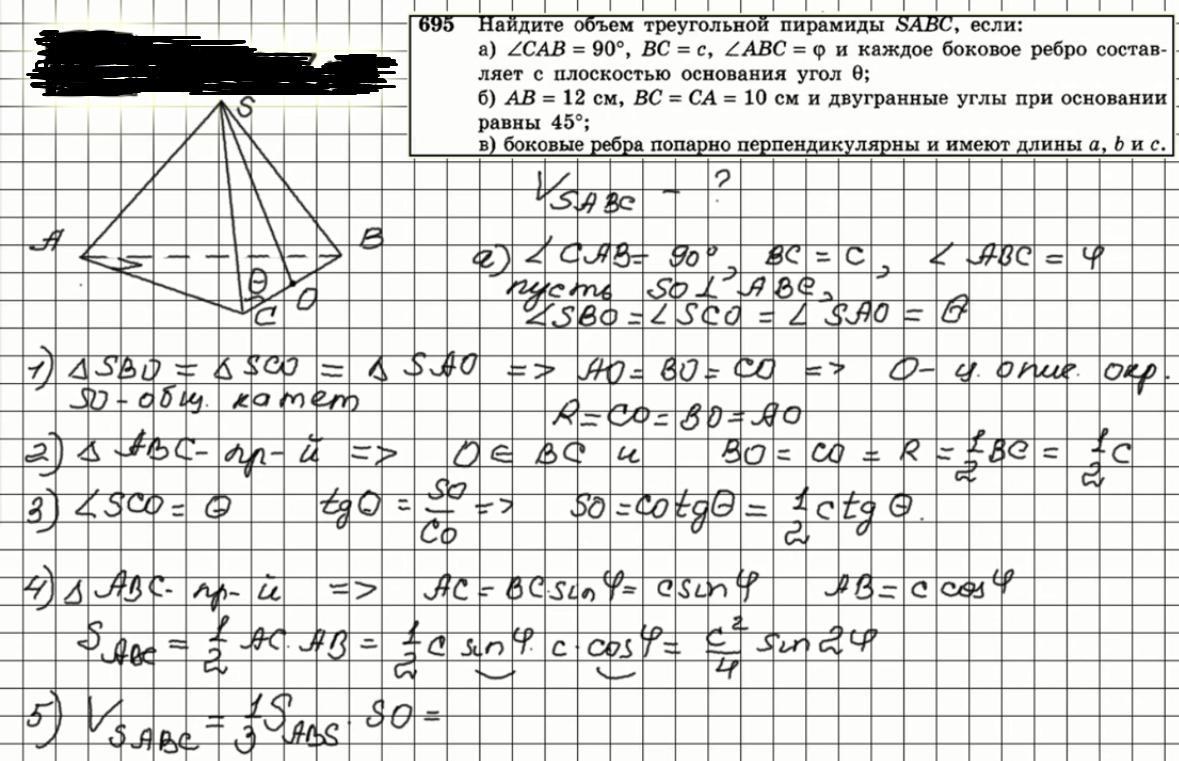 695 Найдите объем треугольной пирамиды SABC, если:
а) ∠CAB = 90°, BC = c, ∠ABC = φ и каждое боковое ребро состав-
ляет с плоскостью основания угол θ;
б) AB = 12 см, BC = CA = 10 см и двугранные углы при основании
равны 45°;
в) боковые ребра попарно перпендикулярны и имеют длины a, b и c.
S
A
B
θ
O
C
V_SABC - ?
а) ∠CAB = 90°, BC = c, ∠ABC = φ
пусть SO ⊥ ABC,
∠SBO = ∠SCO = ∠SAO = θ
1) △SBO = △SCO = △SAO => AO = BO = CO => O - ц. опис. окр.
SO - общ. катет
R = CO = BO = AO
2) △ABC - пр-й => O ∈ BC и BO = CO = R = 1/2 BC = 1/2 c
3) ∠SCO = θ tg θ = SO/CO => SO = CO tg θ = 1/2 c tg θ.
4) △ABC - пр-й => AC = BC·sin φ = c sin φ AB = c cos φ
S_ABC = 1/2 AC·AB = 1/2 c sin φ · c · cos φ = c²/4 sin 2φ
5) V_SABC = 1/3 S_ABS · SO =